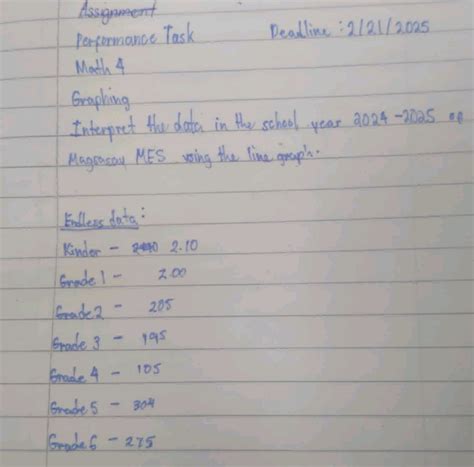 Assignment
Performance Task Deadline : 2/21/2025
Math 4
Graphing
Interpret the data in the school year 2024-2025 of
Magsaysay MES using the line graph.
Endless data :
Kinder - 2.10
Grade 1 - 2.00
Grade 2 - 205
Grade 3 - 195
Grade 4 - 105
Grade 5 - 304
Grade 6 - 275